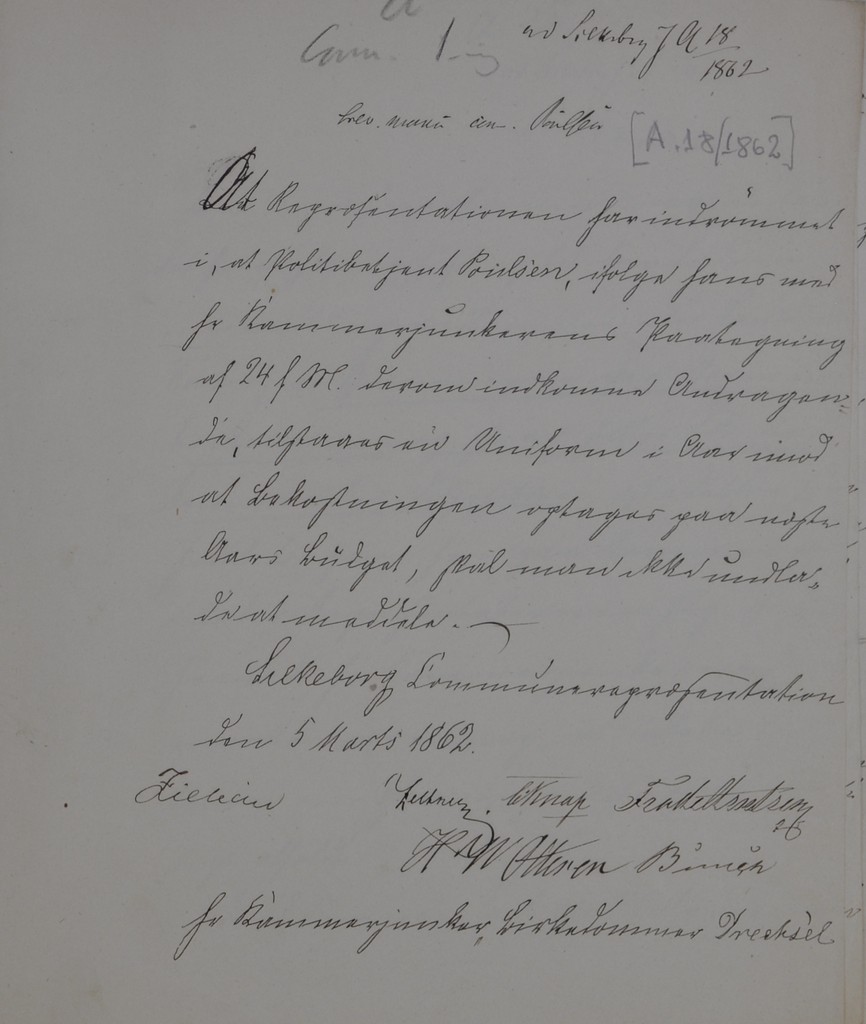 ad Silkeborg J A 18/1862
brev. manu an. Poulsen
[A.18/1862]
At Repræsentationen har indrömmet
i, at Politibetjent Poulsen, ifølge hans med
Hr Kammerjunkerens Paategning
af 24 f. M. derom indkomne Andragen=
de, tilstaaes en Uniform i Aar imod
at Bekostningen optages paa næste
Aars Budget, skal man ikke undla„
de at meddele.
Silkeborg Communerepræsentation
den 5 Marts 1862.
Knap
Hr Kammerjunker, Birkedommer Drechsel